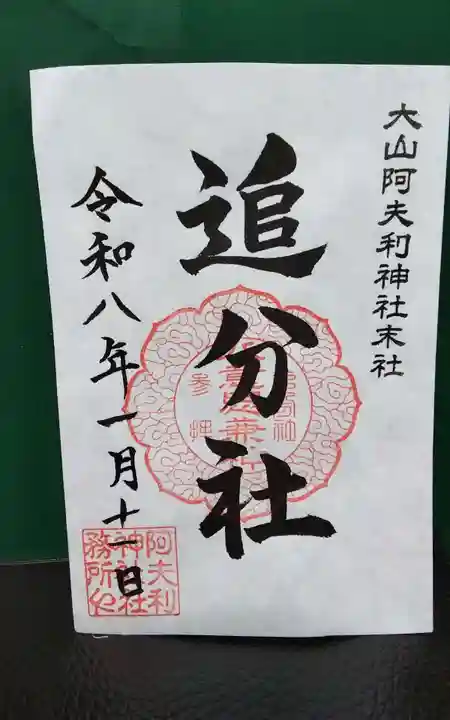 大山阿夫利神社末社
追分社
参拝
令和八年一月十一日
阿夫利
神社社
務所之